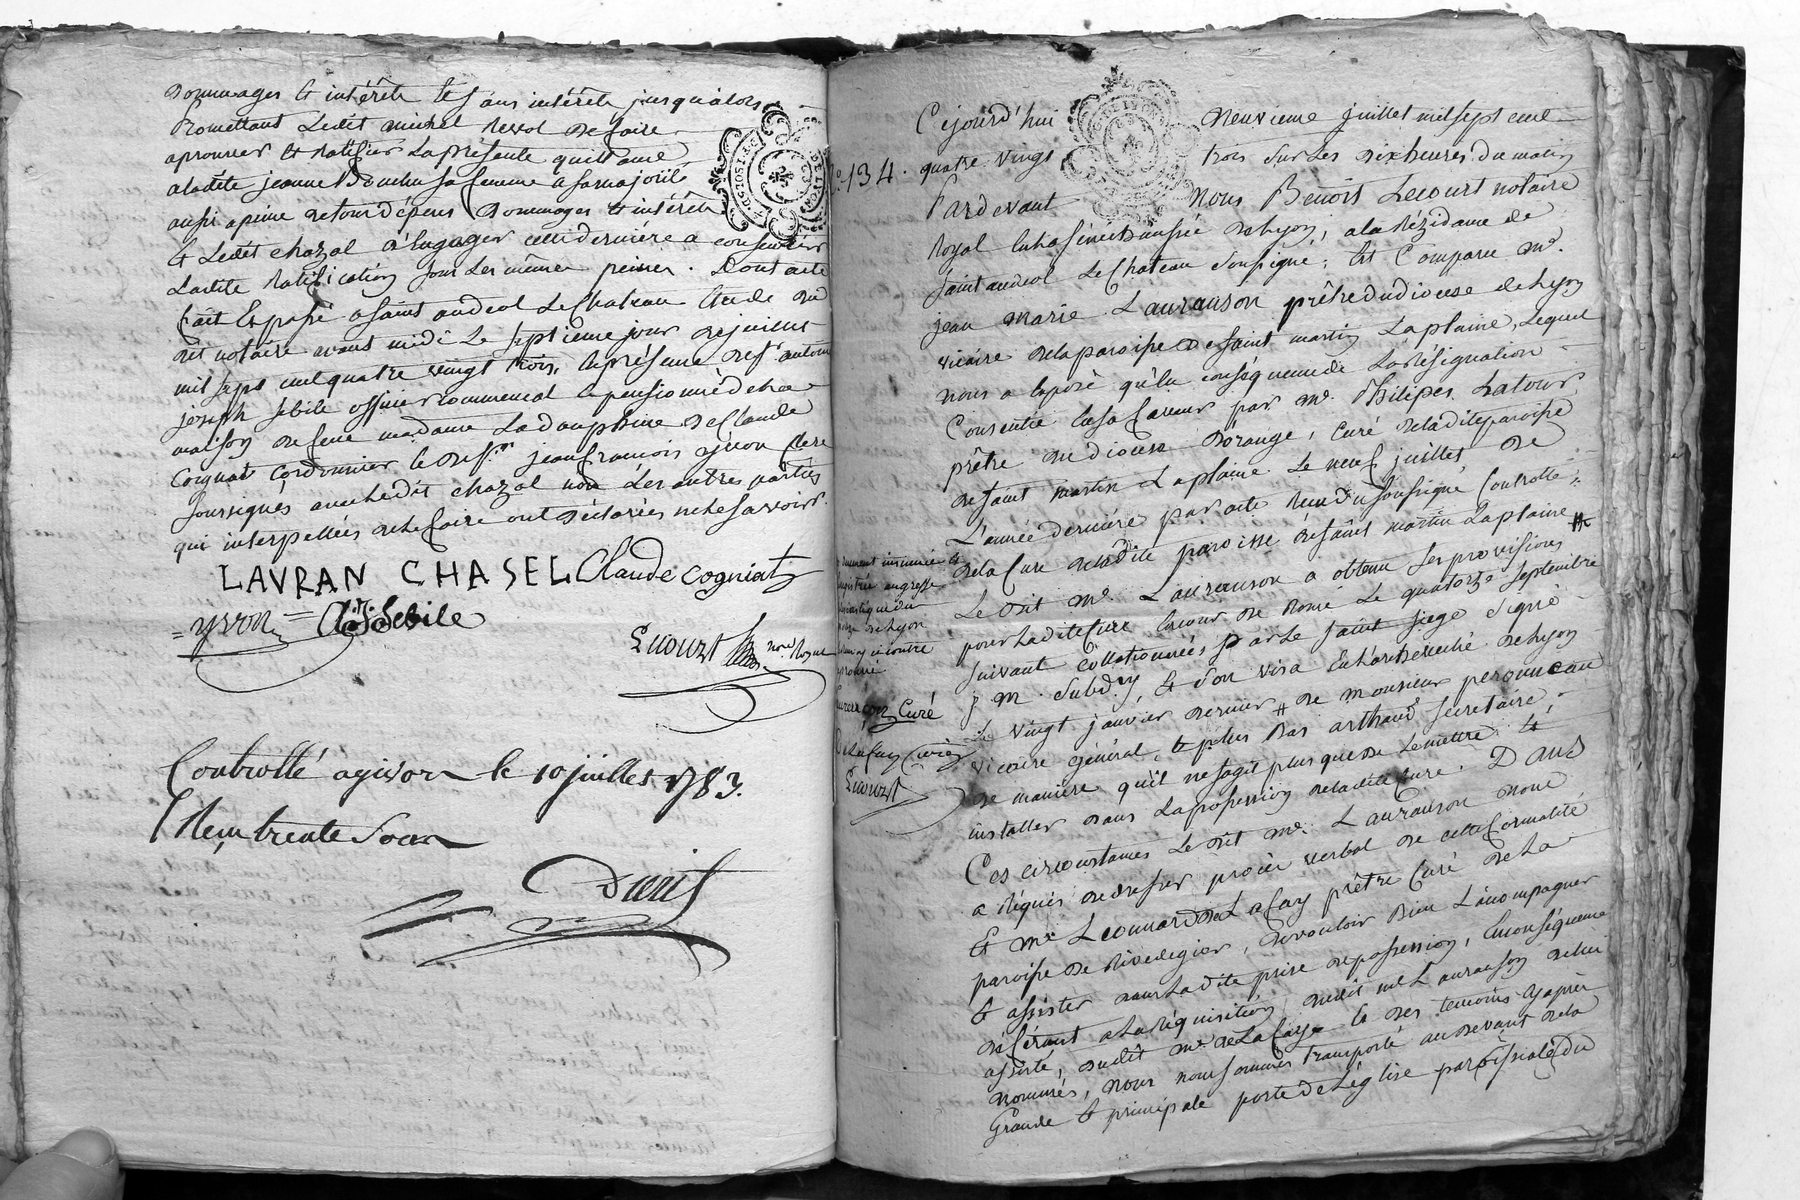 Dommages & intérêts & sans intérêts jusqu'alors
Promettant Ledit michel Revol de faire
aprouver & Ratifier La présente quittance
a ladite jeanne Bouchu sa femme a sa majorité
aussi a peine de tous dépens Dommages & intérêts
& Ledit chazal d'Engager cette derniére a consentir
Ladite Ratification sous Les mêmes peines. Dont acte
fait & passé a saint andeol Le Chateau Etude du
dit notaire avant midi Le septieme jour de juillet
mil sept cent quatre vingt trois, En présence de sr. antoine
joseph Sebile officier commensal & pensionné de la
maison de feue madame La dauphine de Claude
Cogniat Cordonnier & de sr. jean francois yvron clerc
soussignés avec Ledit chazal non Les autres parties
qui interpellées de Le faire ont déclarées ne Le savoir.
LAVRAN CHASEL Claude cogniat
= yvron = A. J. Sebile
Lecourt nore. Royal
Controllé a givors le 10 juillet 1783.
Reçu trente sous
DE LYON
Cejourd'hui neuvieme juillet mil sept cent
134. quatre vingt trois sur Les dix heures du matin
Pardevant Nous Benoit Lecourt notaire
Royal En la sénéchaussée de Lyon, a la Rézidance de
saint andeol Le Chateau soussigné; Est Comparu Me.
jean marie Lauranson prêtre du diocese de Lyon
vicaire de la paroisse de saint martin La plaine, Lequel
nous a Exposé qu'En conséquence de La Résignation
Consentie En sa faveur par Me. Philipes Latour
prêtre du diocese d'orange, Curé de la dite paroisse
de saint martin La plaine Le neuf juillet de
L'année derniére par acte Reçu du soussigné Controllé
de la Cure de la dite paroisse de saint martin La plaine
Le dit Me. Lauranson a obtenu ses provisions
pour La dite Cure En cour de Rome Le quatorze septembre
suivant collationnées par Le saint siege signé
Subd., & son visa En L'archevêché de Lyon
Le vingt janvier dernier de monsieur
vicaire général, & plus Bas arthaud secretaire,
de maniére qu'il ne s'agit plus que de Le mettre &
installer dans La possession de la dite Cure. Dans
Ces circonstances Le dit Me. Lauranson nous
a Réquis de dresser procès verbal de cette formalité
Et Me. Leonard De La Cay prêtre Curé de La
paroisse de Rivedegier, de vouloir Bien L'accompagner
& assister dans La dite prise de possession, En conséquence
déférant a La Réquisition dudit Me Lauranson de lui
assisté, dudit Me. De La Cay & des temoins cy après
nommés, nous nous sommes transporté au devant de la
Grande & principale porte de L'église paroissiale du
de Lyon
Curé
Lecourt